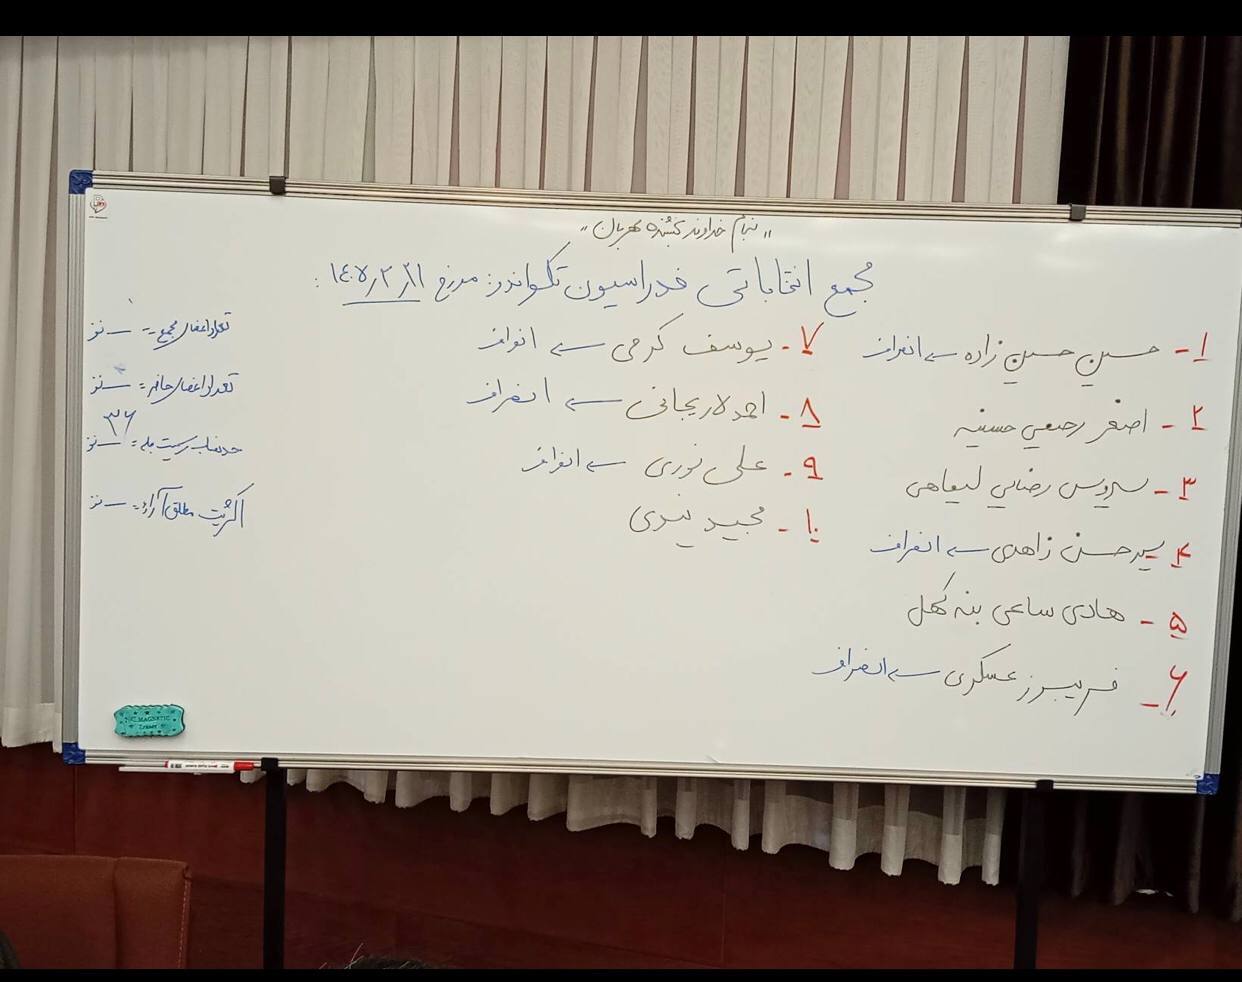 "بنام خداوند بخشنده مهربان"
مجمع انتخاباتی فدراسیون تکواندو: مورخ ۱۴۰۵/۲/۲۱:
۱- حسین حسین زاده ← انصراف
۲- اصغر رحیمی حسنیه
۳- سیروس رضایی لیفاهی
۴ سید حسن زاهدی ← انصراف
۵- هادی ساعی بنه کهل
۶- فریبرز عسکری ← انصراف
۷- یوسف کرمی ← انصراف
۸- احمد لاریجانی ← انصراف
۹- علی نوری ← انصراف
۱۰- مجید
تعداد اعضای مجمع = — نفر
تعداد اعضای حاضر = — نفر
حد نصاب رسمیت جلسه = ۳۶ نفر
اکثریت مطلق آراء = — نفر
MAGNETIC